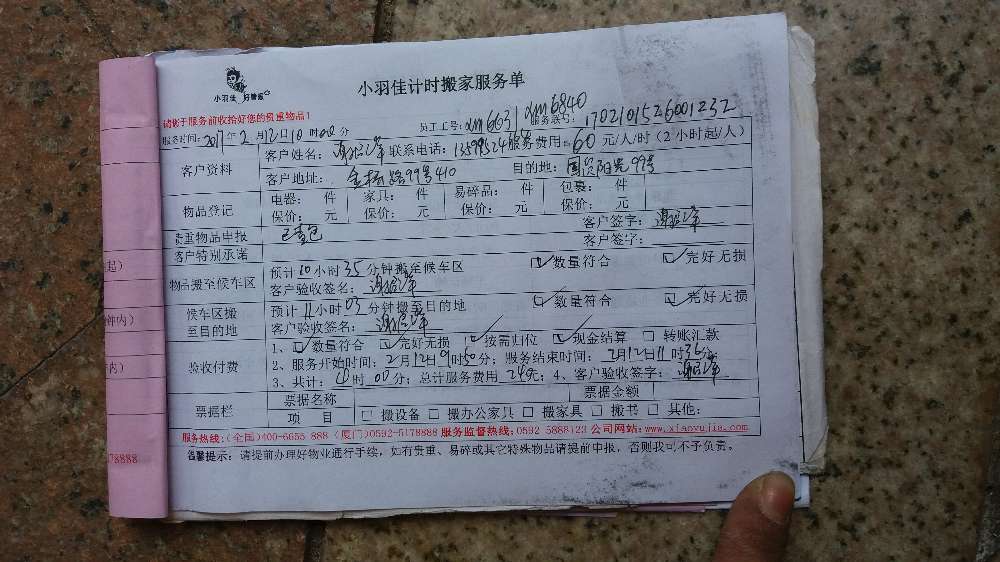 小羽佳 好管家
小羽佳计时搬家服务单
请您于服务前收拾好您的贵重物品！
员工工号：xm6631 xm6840 服务联号：1702101526001232
服务时间：2017年2月12日10时00分
客户资料
客户姓名： 联系电话： 服务费用：60元/人/时（2小时起/人）
客户地址： 金桥路99号410 目的地：国贸阳光99号
物品登记
电器： 件 家具： 件 易碎品： 件 包裹： 件
保价： 元 保价： 元 保价： 元 保价： 元
贵重物品申报 已查包 客户签字：
客户特别承诺 客户签字：
物品搬至候车区
预计10小时35分钟搬至候车区 ☑数量符合 ☑完好无损
客户验收签名：
候车区搬至目的地
预计11小时03分钟搬至目的地 ☑数量符合 ☑完好无损
客户验收签名：
验收付费
1、☑数量符合 ☑完好无损 ☑按需归位 ☑现金结算 □转账汇款
2、服务开始时间：2月12日9时50分；服务结束时间：2月12日11时36分
3、共计： 时00分；总计服务费用240元；4、客户验收签字：
票据栏
票据名称 票据金额
项目 □搬设备 □搬办公家具 □搬家具 □搬书 □其他：
服务热线：(全国)400-6655 888 (厦门)0592-5178888 服务监督热线：0592 5888123 公司网站：www.xiaoyujia.com
温馨提示：请提前办理好物业通行手续，如有贵重、易碎或其它特殊物品请提前申报，否则我司不予负责。
起）
钟内）
内）
78888